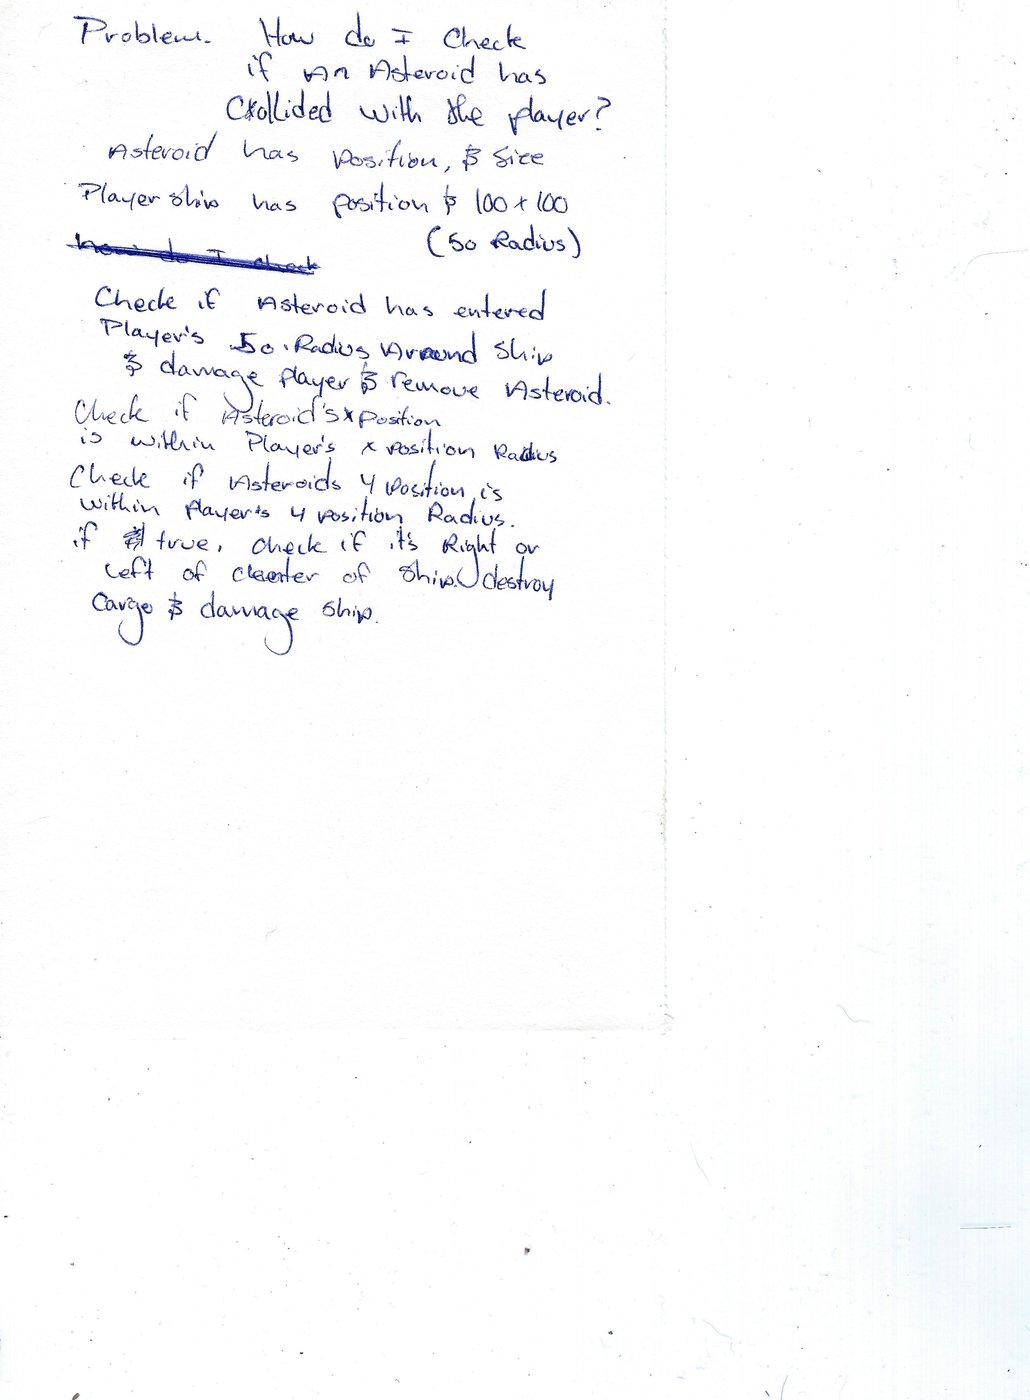 Problem. How do I Check
if An Asteroid has
Collided with the player?
Asteroid has position, & Size
Player ship has position & 100 x 100
(50 Radius)
how do I check
Check if Asteroid has entered
Player's 50 Radius Around ship
& damage player & remove Asteroid.
Check if Asteroid's x position
is within Player's x position Radius
Check if Asteroids y position is
within player's y position Radius.
if true, check if it's Right or
Left of center of ship. destroy
Cargo & damage ship.